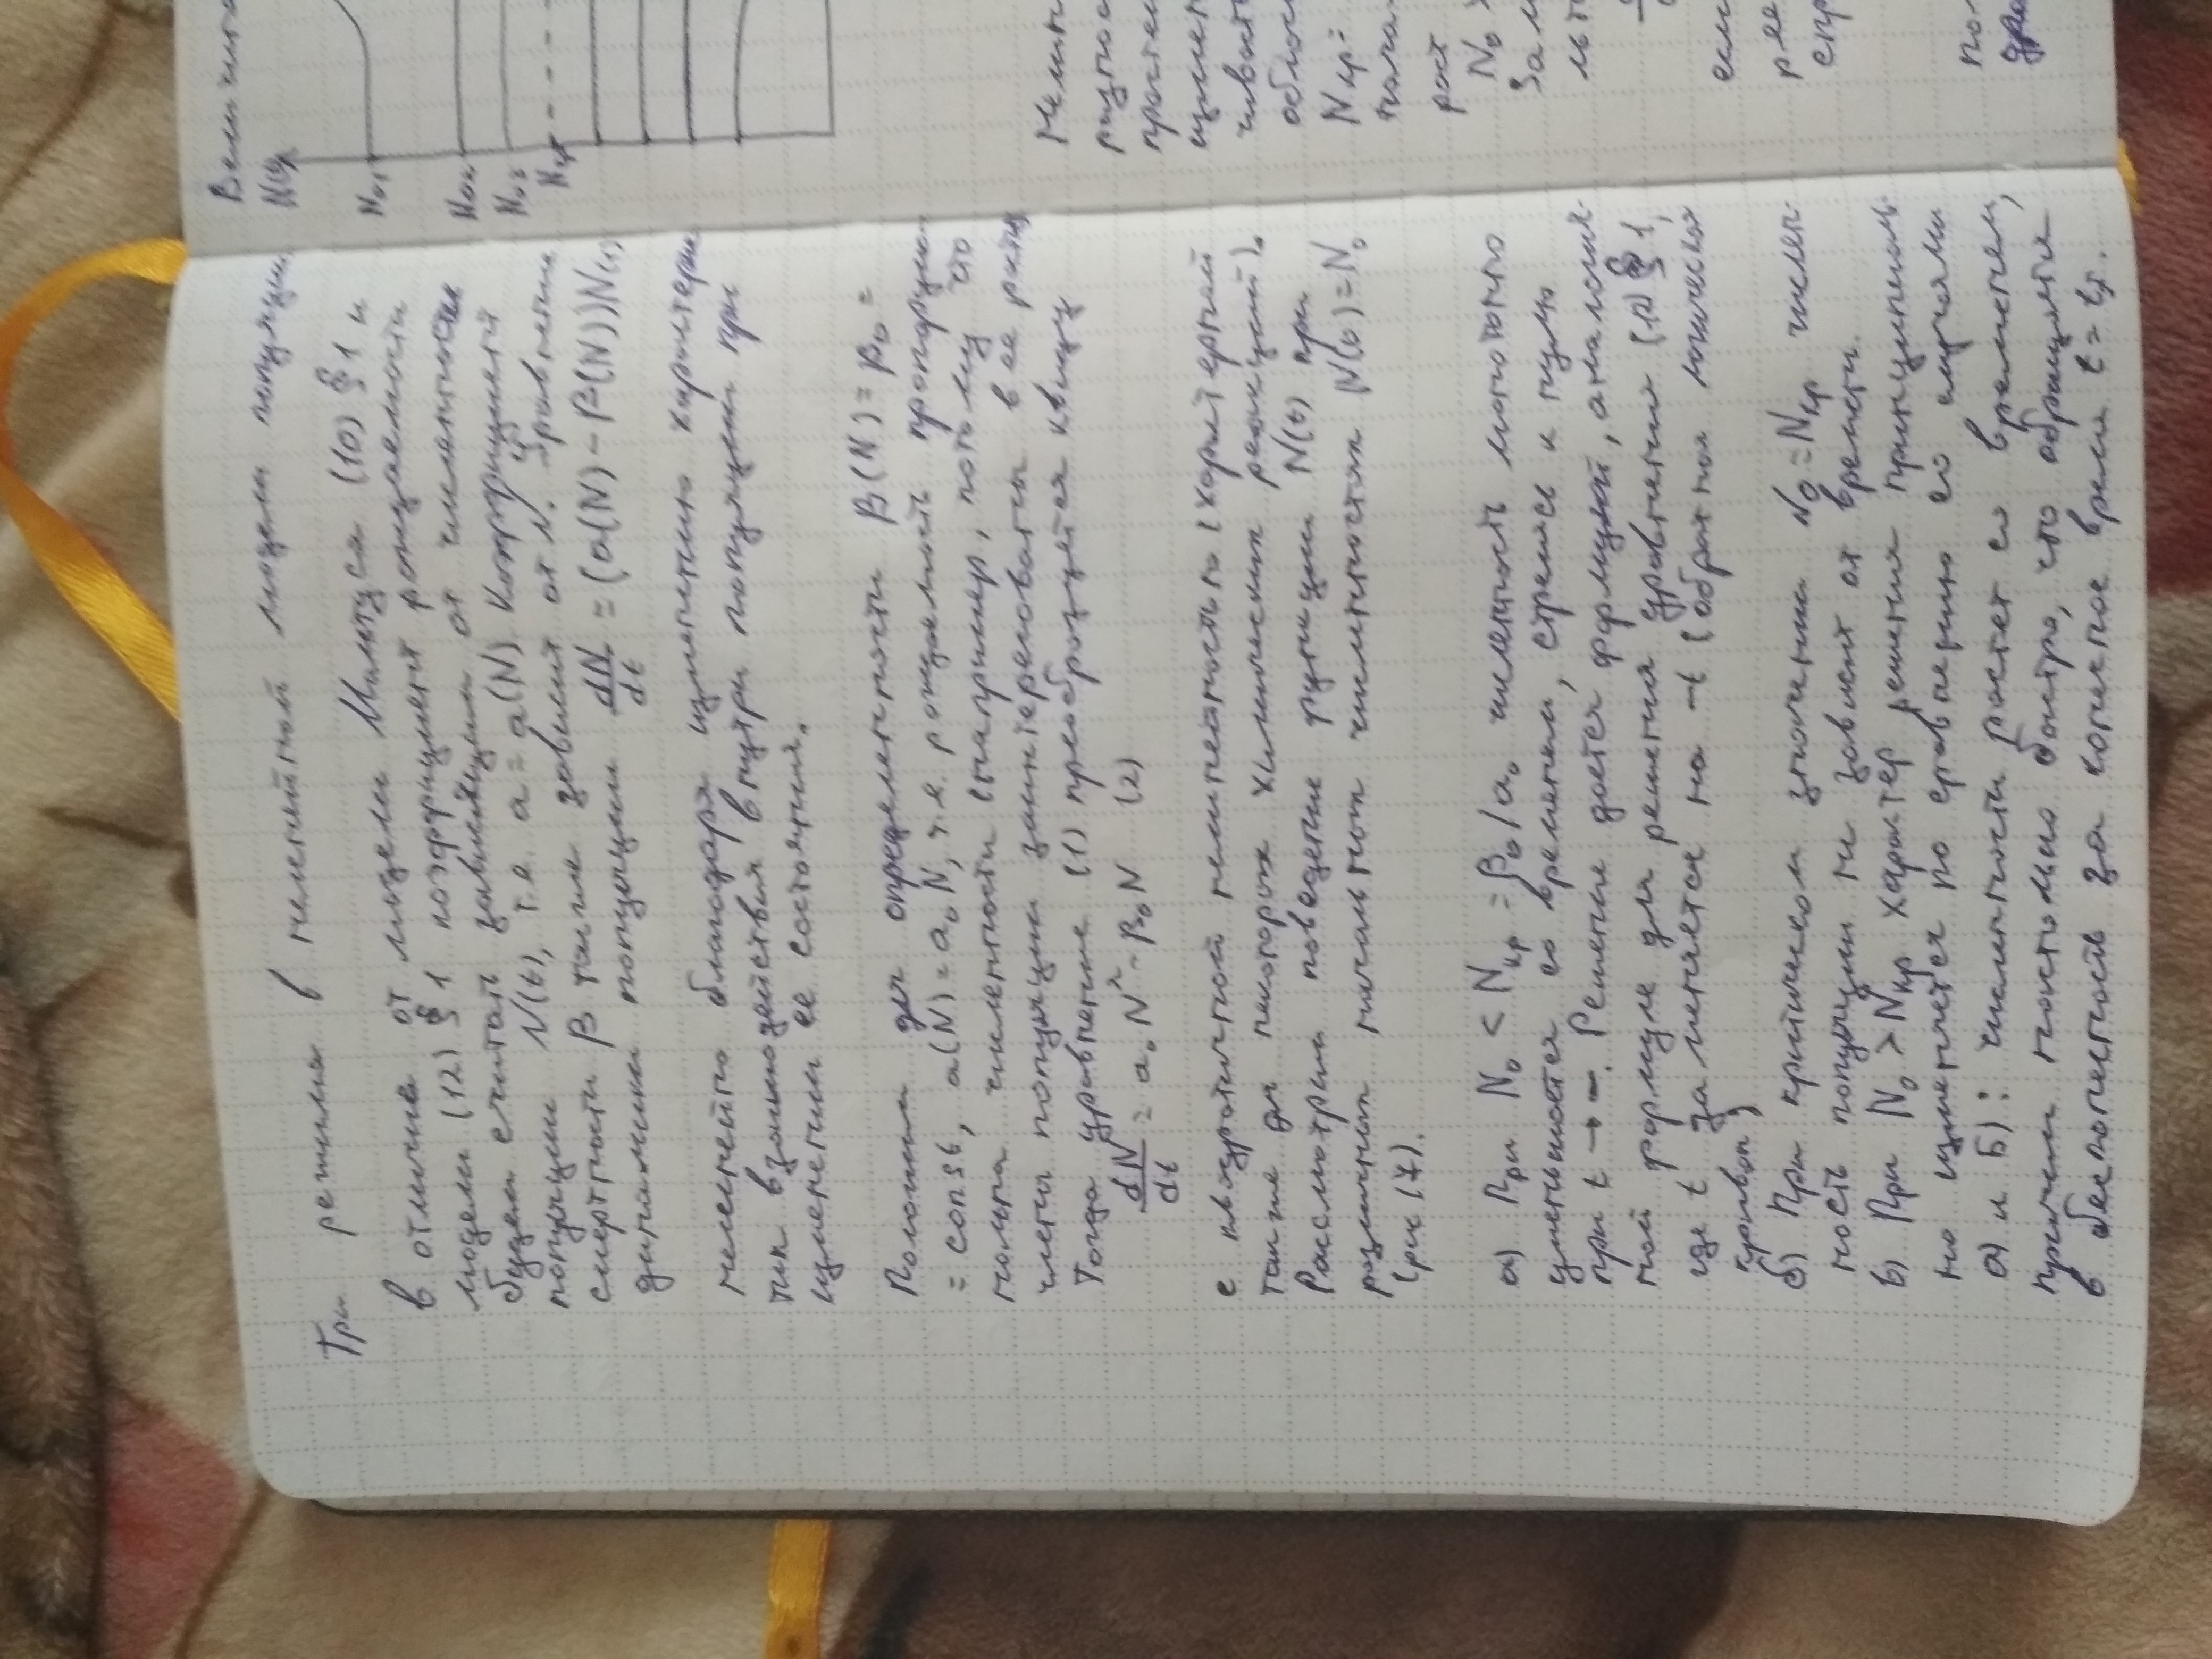 Три режима в нелинейной модели популяции
в отличие от модели Мальтуса (10) § 1 и
модели (12) § 1 коэффициент рождаемости
будем считать зависящим от численности
популяции N(t), т.е. a = a(N) Коэффициент
смертности β также зависит от N. Уравнение
динамики популяции dN/dt = (a(N) - β(N))N(t)
благодаря изменению характерис
тик взаимодействия внутри популяции при
изменении ее состояния.
Положим для определенности β(N) = β₀ =
= const, a(N) = a₀N, т.е. рождаемость пропорцио-
нальна численности (например, потому что
члены популяции заинтересованы в ее росте
Тогда уравнение (1) преобразуется к виду
dN/dt = a₀N² - β₀N (2)
с квадратичной нелинейностью (характерной
также для некоторых химических реакций).
Рассмотрим поведение функции N(t) при
различных начальных численностях N(0) = N₀
(рис 17).
а) При N₀ < Nкр = β₀/a₀ численность монотонно
уменьшается со временем, стремясь к нулю
при t → ∞. Решение дается формулой, аналогич-
ной формуле для решения уравнения (12) § 1,
где t заменяется на -t (обратная логическая
кривая)
б) При критическом значении N₀ = Nкр числен-
ность популяции не зависит от времени.
в) При N₀ > Nкр характер решения принципиаль-
но изменяется по сравнению со случаями
а) и б): численность растет со временем,
причем настолько быстро, что обращается
в бесконечность за конечное время t = tf.
Величина
N(t)
N₀₁
N₀₂
N₀₃
Nкр
Nкр =
рост
N₀ >